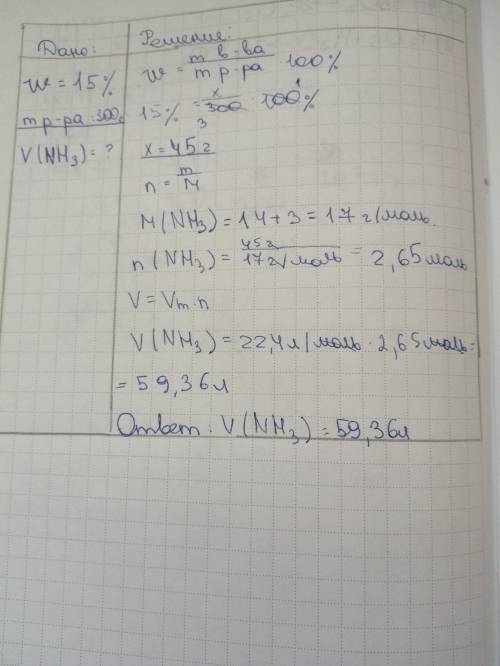 Дано:
w = 15%
m р-ра = 300г
V(NH₃) = ?
Решение:
w = m в-ва / m р-ра · 100%
15% = x / 300 · 100%
3 1
x = 45 г
n = m / M
M(NH₃) = 14 + 3 = 17 г/моль.
n(NH₃) = 45 г / 17 г/моль = 2,65 моль
V = Vm · n
V(NH₃) = 22,4 л/моль · 2,65 моль =
= 59,36 л
Ответ: V(NH₃) = 59,36л